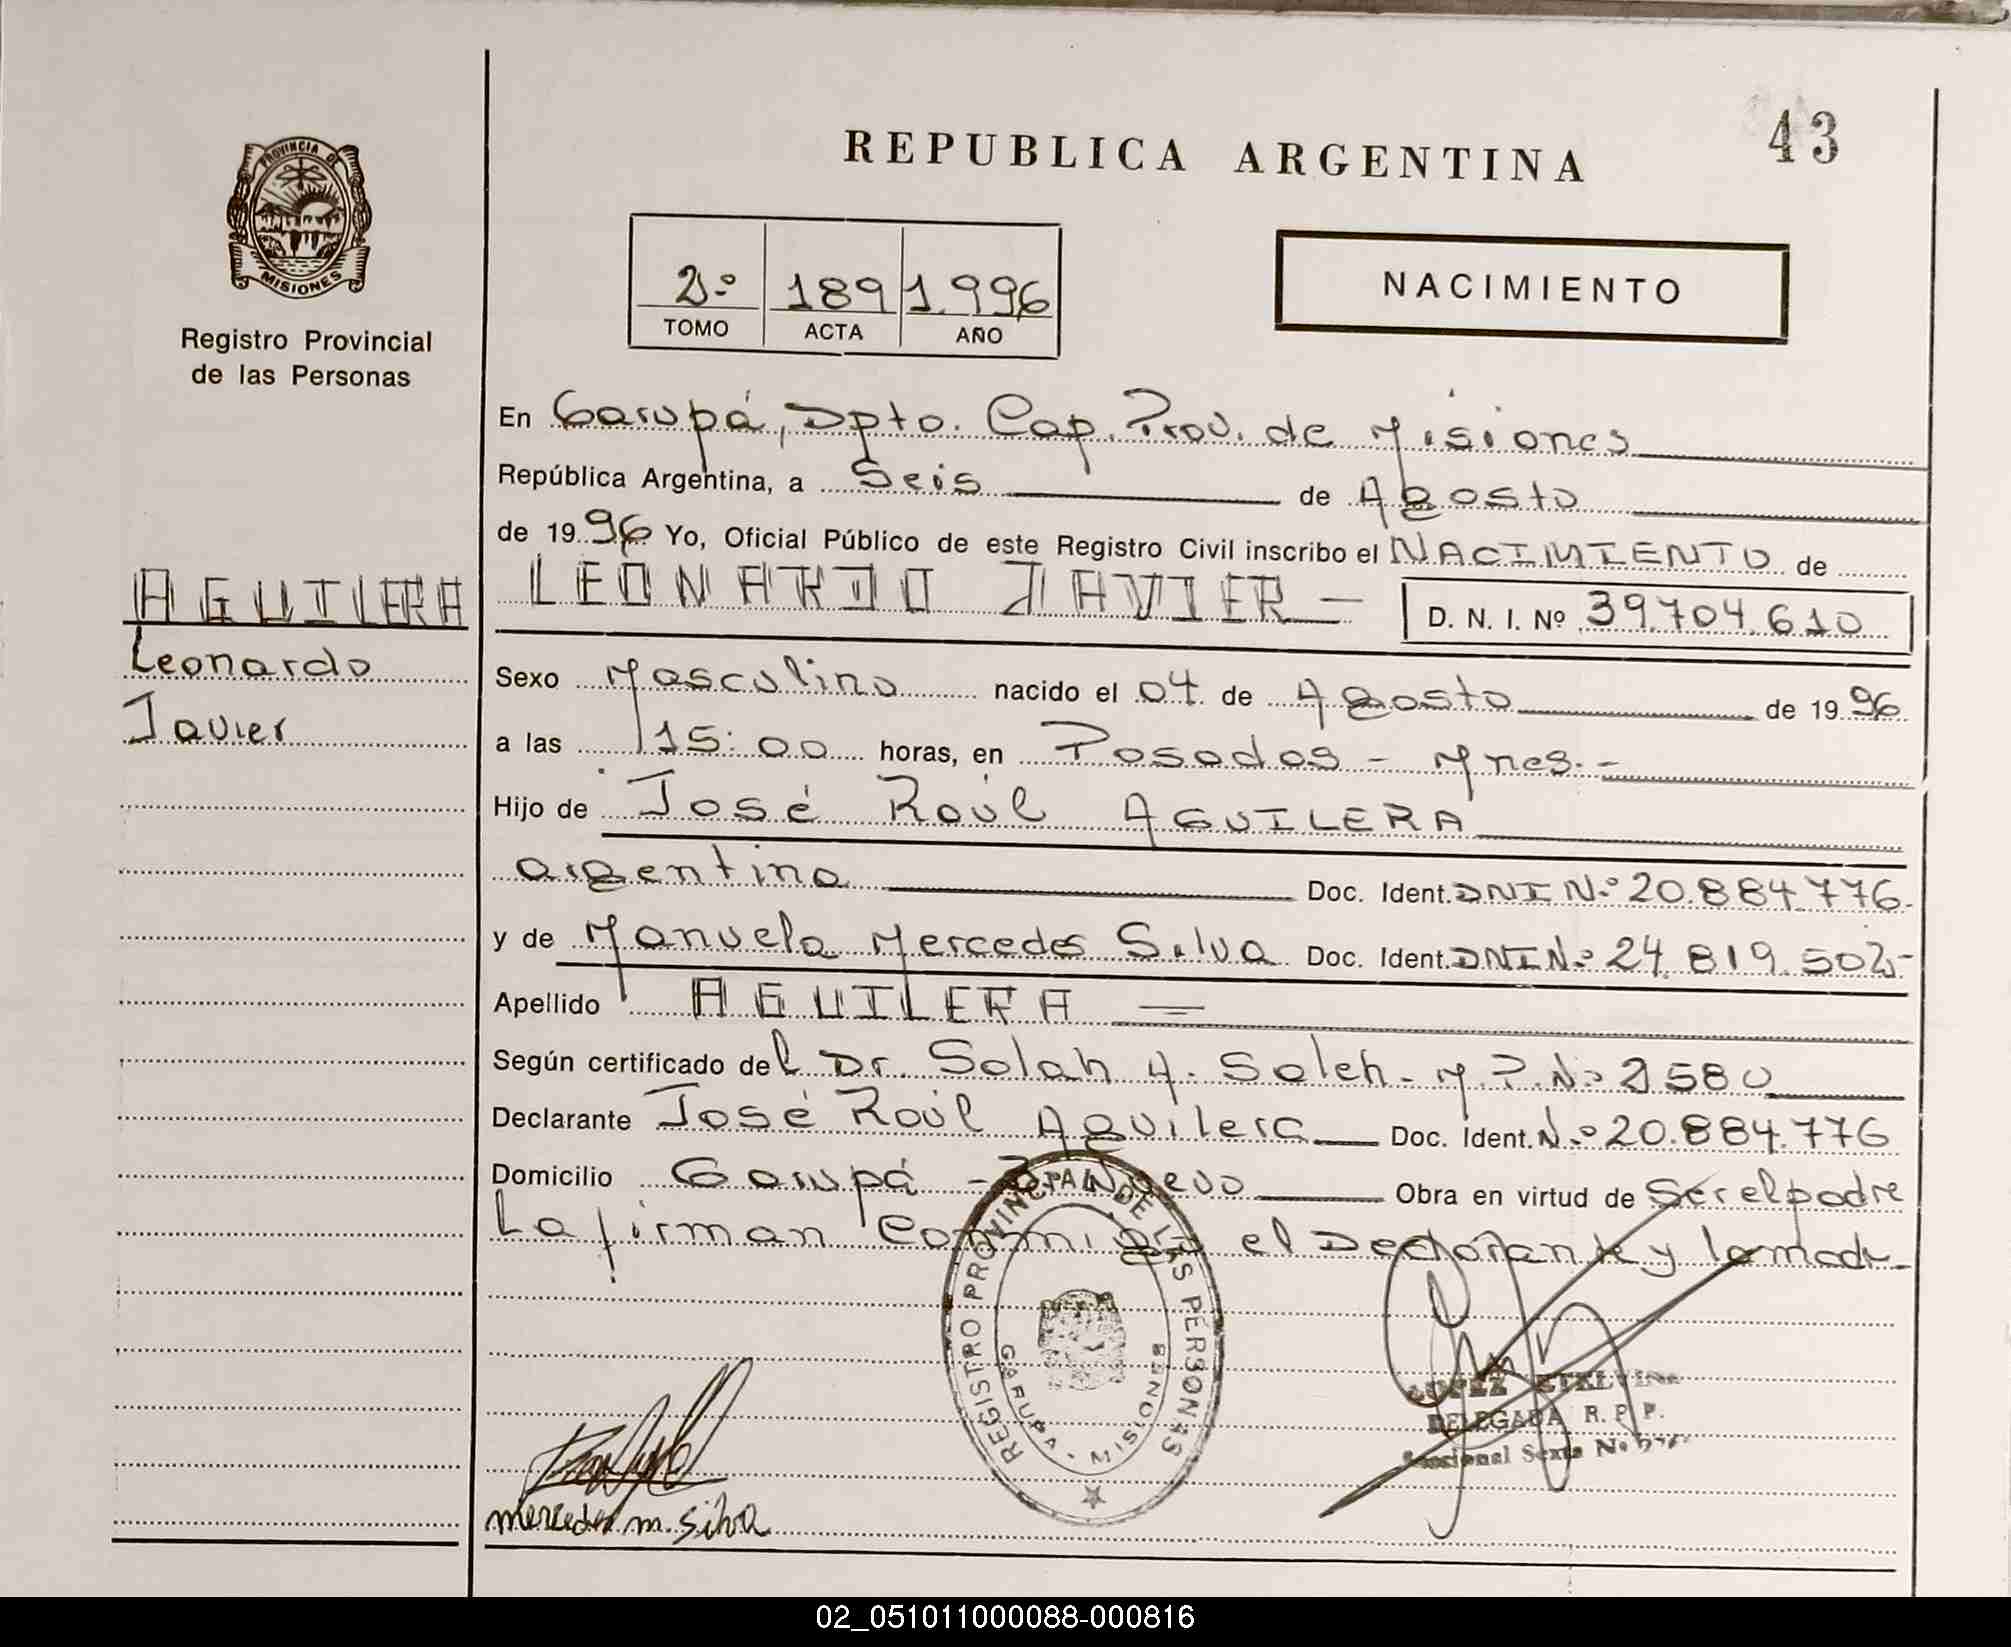 PROVINCIA DE
MISIONES
Registro Provincial
de las Personas
AGUILERA
Leonardo
Javier
43
REPUBLICA ARGENTINA
2º 189 1.996
TOMO ACTA AÑO
NACIMIENTO
En Garupá, Dpto. Cap. Prov. de Misiones
República Argentina, a Seis de Agosto
de 1996 Yo, Oficial Público de este Registro Civil inscribo el NACIMIENTO de
LEONARDO JAVIER — D. N. I. Nº 39.704.610
Sexo Masculino nacido el 04 de Agosto de 1996
a las 15:00 horas, en Posadas - Mnes. -
Hijo de José Raúl AGUILERA
argentino Doc. Ident. DNI Nº 20.884.776-
y de Manuela Mercedes Silva Doc. Ident. DNI Nº 24.819.502-
Apellido AGUILERA =
Según certificado del Dr. Salah A. Saleh - M.P. Nº 2580
Declarante José Raúl Aguilera Doc. Ident. Nº 20.884.776
Domicilio Garupá - Bº Nuevo Obra en virtud de Ser el padre
La firman Conmigo el Declarante y la madre
REGISTRO PROVINCIAL DE LAS PERSONAS
GARUPA - MISIONES
LOPEZ ETELVINA
DELEGADA R. P. P.
Seccional Sexta Nº
mercedes m. silva
02_051011000088-000816